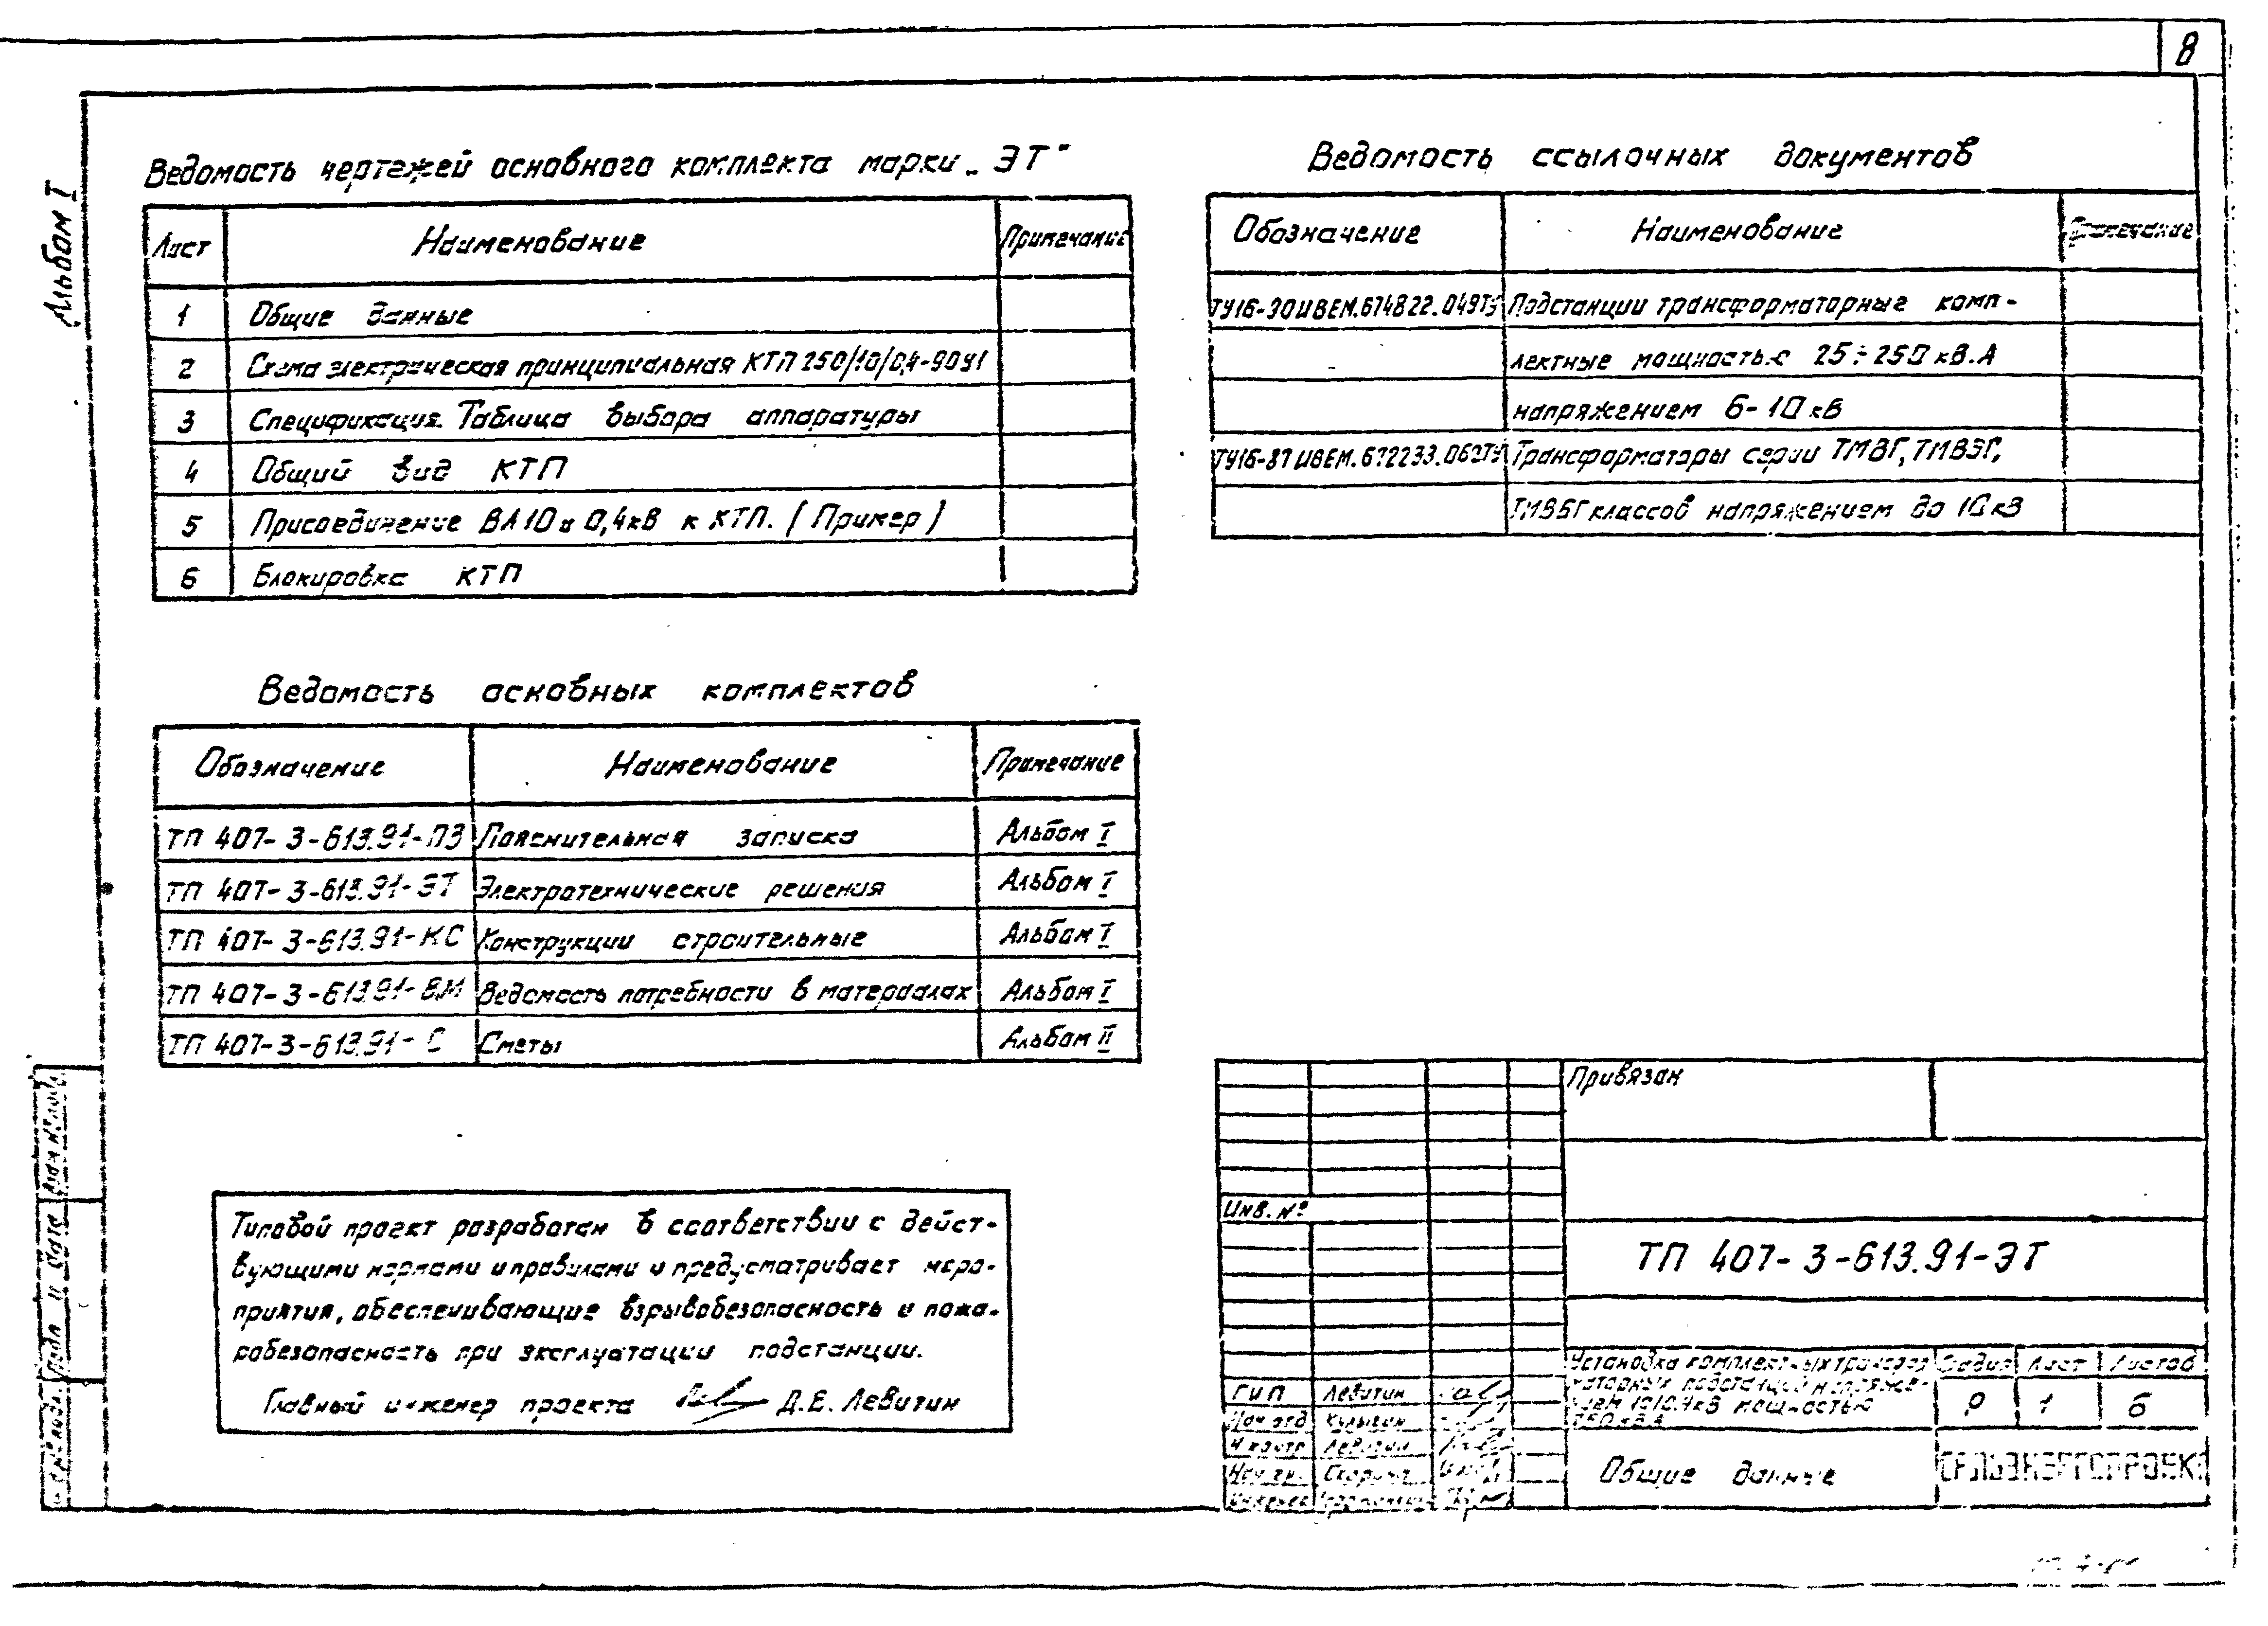 8
Альбом I
Ведомость чертежей основного комплекта марки „ЭТ"
Лист Наименование Примечание
1 Общие данные
2 Схема электрическая принципиальная КТП 250/10/0,4-90У1
3 Спецификация. Таблица выбора аппаратуры
4 Общий вид КТП
5 Присоединение ВЛ 10 и 0,4кВ к КТП. (Пример)
6 Блокировка КТП
Ведомость ссылочных документов
Обозначение Наименование Примечание
ТУ16-90ИВЕМ.674822.049ТУ Подстанции трансформаторные комп-
лектные мощностью 25÷250 кВ.А
напряжением 6-10 кВ
ТУ16-87ИВЕМ.672233.062ТУ Трансформаторы серии ТМВГ, ТМВЭГ,
ТМВБГ классов напряжением до 10 кВ
Ведомость основных комплектов
Обозначение Наименование Примечание
ТП 407-3-613.91-ПЗ Пояснительная записка Альбом I
ТП 407-3-613.91-ЭТ Электротехнические решения Альбом I
ТП 407-3-613.91-КС Конструкции строительные Альбом I
ТП 407-3-613.91-ВМ Ведомость потребности в материалах Альбом I
ТП 407-3-613.91-С Сметы Альбом II
Типовой проект разработан в соответствии с дейст-
вующими нормами и правилами и предусматривает меро-
приятия, обеспечивающие взрывобезопасность и пожа-
робезопасность при эксплуатации подстанции.
Главный инженер проекта Д.Е. Левитин
Привязан
Инв. №
ТП 407-3-613.91-ЭТ
Установка комплектных трансфор
маторных подстанций напряже-
нием 10/0,4кВ мощностью
250 кВ.А
Стадия Лист Листов
Р 1 6
ГИП Левитин
Нач. отд Кулыгин
Н.контр Левитин
Общие данные
СЕЛЬЭНЕРГОПРОЕКТ
Подп. и дата